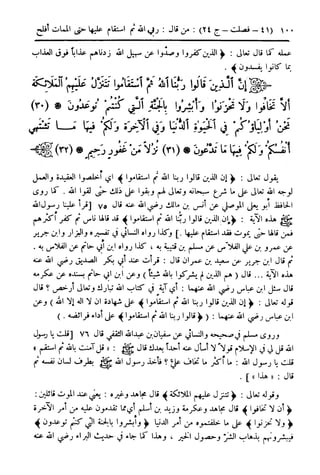 ١٠٠ (٤١ – فصلت – ج ٢٤) : من قال : ربي الله ثم استقام عليها حتى الممات أفلح
عمله كما قال تعالى : ﴿ الذين كفروا وصدّوا عن سبيل الله زدناهم عذاباً فوق العذاب
بما كانوا يفسدون ﴾ .
إِنَّ ٱلَّذِينَ قَالُوا رَبُّنَا ٱللَّهُ ثُمَّ ٱسْتَقَٰمُوا تَتَنَزَّلُ عَلَيْهِمُ ٱلْمَلَٰٓئِكَةُ
أَلَّا تَخَافُوا وَلَا تَحْزَنُوا وَأَبْشِرُوا بِٱلْجَنَّةِ ٱلَّتِي كُنتُمْ تُوعَدُونَ (٣٠)
نَحْنُ أَوْلِيَآؤُكُمْ فِي ٱلْحَيَوٰةِ ٱلدُّنْيَا وَفِي ٱلْأَخِرَةِ وَلَكُمْ فِيهَا مَا تَشْتَهِي
أَنفُسُكُمْ وَلَكُمْ فِيهَا مَا تَدَّعُونَ (٣١) نُزُلًا مِّنْ غَفُورٍ رَّحِيمٍ (٣٢)
يقول تعالى : ﴿ إن الذين قالوا ربنا الله ثم استقاموا ﴾ أي أخلصوا العقيدة والعمل
لوجه الله تعالى على ما شرع سبحانه وتعالى لهم وبقوا على ذلك حتى لقوا الله . كما روى
الحافظ أبو يعلى الموصلي عن أنس بن مالك رضي الله عنه قال ٧٥ [قرأ علينا رسول الله
هذه الآية : ﴿ إن الذين قالوا ربُّنا الله ثم استقاموا ﴾ قد قالها ناس ثم كفر أكثرهم
فمن قالها حتى يموت فقد استقام عليها .] وكذا رواه النسائي في تفسيره والبزار وابن جرير
عن عمرو بن علي الفلاس عن مسلم بن قتيبة به ، كذا رواه ابن أبي حاتم عن الفلاس به .
ثم قال ابن جرير عن سعيد بن عمران قال : قرأت عند أبي بكر الصديق رضي الله عنه
هذه الآية ... قال ( هم الذين لم يشركوا بالله شيئاً ) وعن ابن أبي حاتم بسنده عن عكرمة
قال سئل ابن عباس رضي الله عنهما : أي آية في كتاب الله تبارك وتعالى أرخص ؟ قال
قوله تعالى : ﴿ إن الذين قالوا ربنا الله ثم استقاموا ﴾ على شهادة ان لا اله إلا الله ( وعن
ابن عباس رضي الله عنهما : ﴿ قالوا ربنا الله ثم استقاموا ﴾ على أداء فرائضه . )
وروى مسلم في صحيحه والنسائي عن سفيان بن عبد الله الثقفي قال ٧٦ [قلت يا رسول
الله قل لي في الإسلام قولا لا أسأل عنه أحداً بعدك قال : قل آمنت بالله ثم استقم ،
قلت يا رسول الله : ما أكثر ما تخاف عليّ ؟ فأخذ رسول الله بطرف لسان نفسه ثم
قال : « هذا » ] .
وقوله تعالى : ﴿ تتنزل عليهم الملائكة ﴾ قال مجاهد وغيره : يعني عند الموت قائلين :
﴿ أن لا تخافوا ﴾ قال مجاهد وعكرمة وزيد بن أسلم أي مما تقدمون عليه من أمر الآخرة
﴿ ولا تحزنوا ﴾ على ما خلفتموه من أمر الدنيا ﴿ وأبشروا بالجنة التي كنتم توعدون ﴾
فيبشرونهم بذهاب الشر وحصول الخير ، وهذا كما جاء في حديث البراء رضي الله عنه